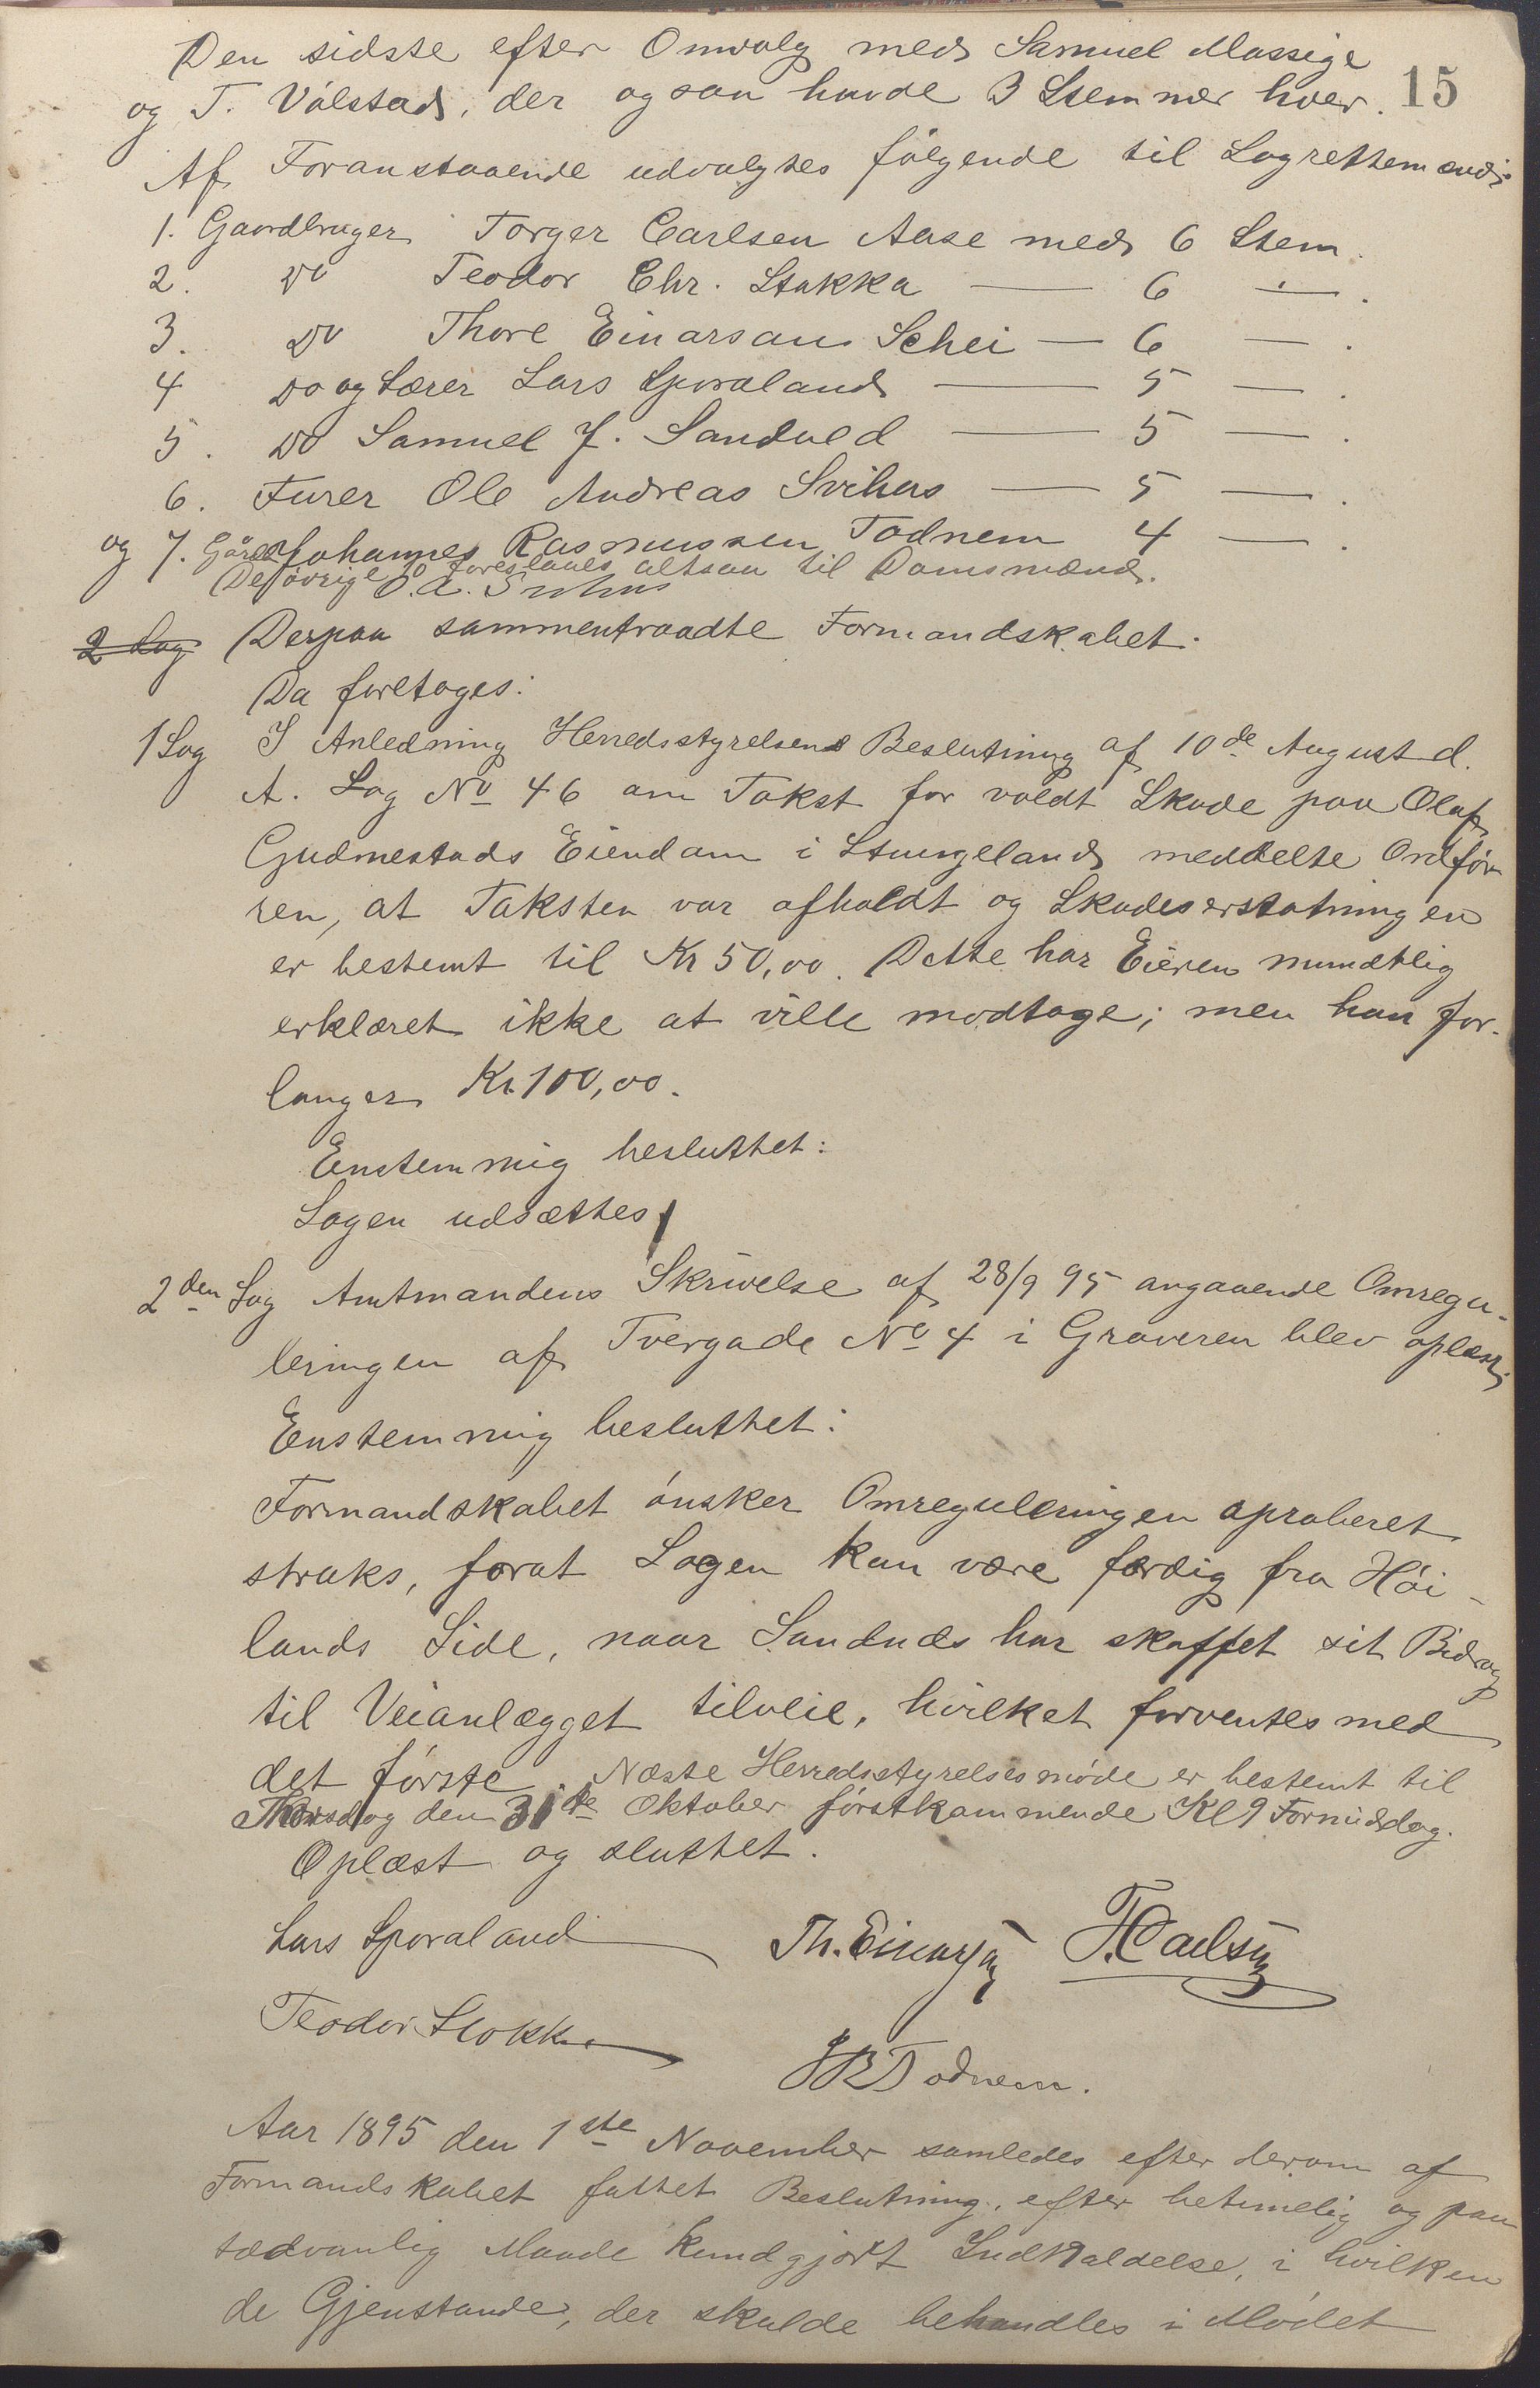 15
Den sidste efter Omvalg med Samuel Massige
og T. Vålstad, der ogsaa havde 3 Stemmer hver.
Af Foranstaaende udvalgtes følgende til Lagrettemænd:
1. Gaardbruger Torger Carlsen Aase med 6 Stem.
2. Do Teodor Chr. Stokka — 6 — .
3. Do Thore Einarsen Schei — 6 — .
4 Do og Lærer Lars Sporaland — 5 — .
5. Do Samuel J. Sandved — 5 — .
6. Furer Ole Andreas Svihus — 5 — .
og 7. Gårdbr Johannes Rasmussen Todnem 4 — .
De øvrige 10 foreslaaes altsaa til Domsmænd.
O. A. Svihus
2 Sag Derpaa sammentraadte Formandskabet.
Da foretoges:
1 Sag I Anledning Herredsstyrelsens Beslutning af 10de August d.
A. Sag No 46 om Takst for voldt Skade paa Olaf
Gudmestads Eiendom i Stangeland meddelte Ordfør-
ren, at Taksten var afholdt og Skadeserstatningen
er bestemt til Kr 50,00. Dette har Eieren mundtlig
erklæret ikke at ville modtage; men han for-
langer Kr. 100,00.
Enstemmig besluttet:
Sagen udsættes
2den Sag Amtmandens Skrivelse af 28/9 95 angaaende Omregu-
leringen af Tvergade No 4 i Graveren blev oplæst;
Enstemmig besluttet:
Formandskabet ønsker Omreguleringen aproberet
straks, forat Sagen kan være færdig fra Høi-
lands Side, naar Sandnæs har skaffet sit Bidrag
til Veianlægget tilveie, hvilket forventes med
det første. Næste Herredsstyrelsesmøde er bestemt til
Thorsdag den 31te Oktober førstkommende Kl 9 Formiddag.
Oplæst og sluttet.
Lars Sporaland Th. Einarsen T. Carlsen
Teodor Stokka J R Todnem.
Aar 1895 den 1ste November samledes efter derom af
Formandskabet fattet Beslutning, efter betimelig og paa
sædvanlig Maade kundgjort Indkaldelse, i hvilken
de Gjenstande, der skulde behandles i Mødet